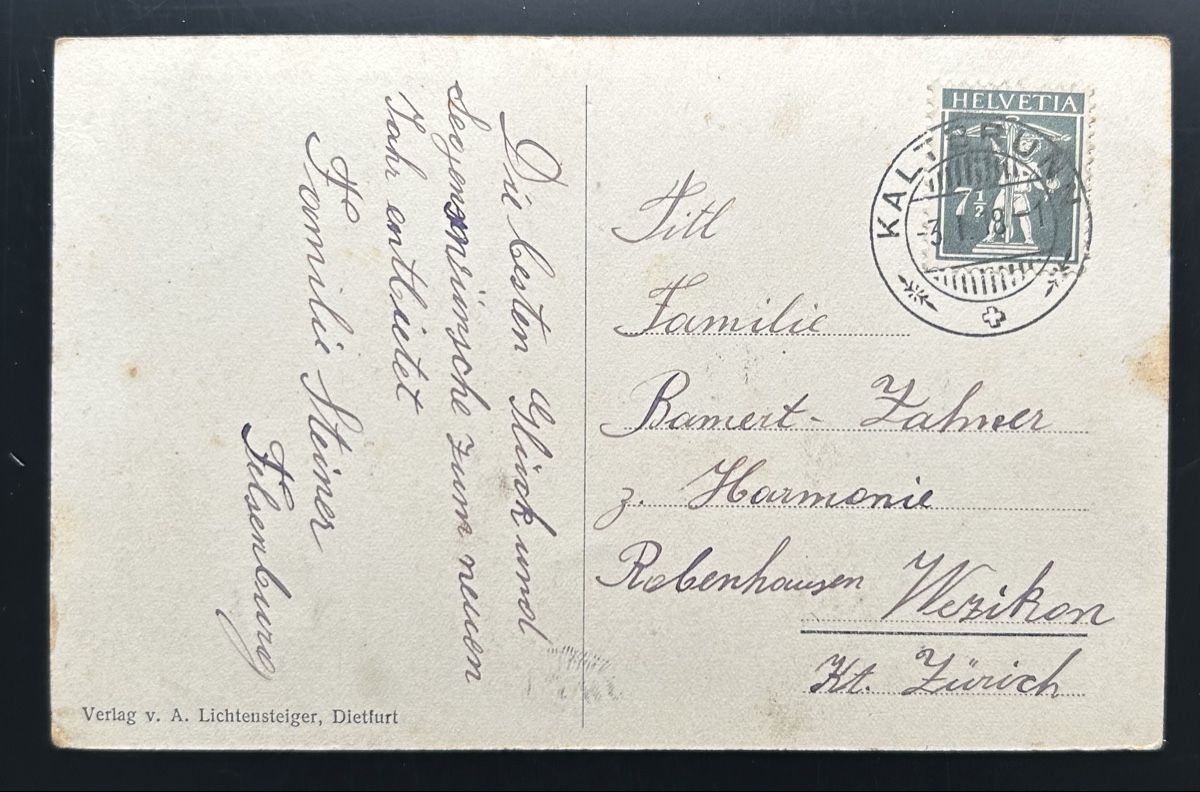 Die besten Glück und
Segenswünsche zum neuen
Jahr entbietet
Familie Steiner
Felsenburg
Verlag v. A. Lichtensteiger, Dietfurt
HELVETIA
7½
KALTBRUNN
Titl
Familie
Bamert-Zahner
z. Harmonie
Robenhausen Wezikon
Kt. Zürich